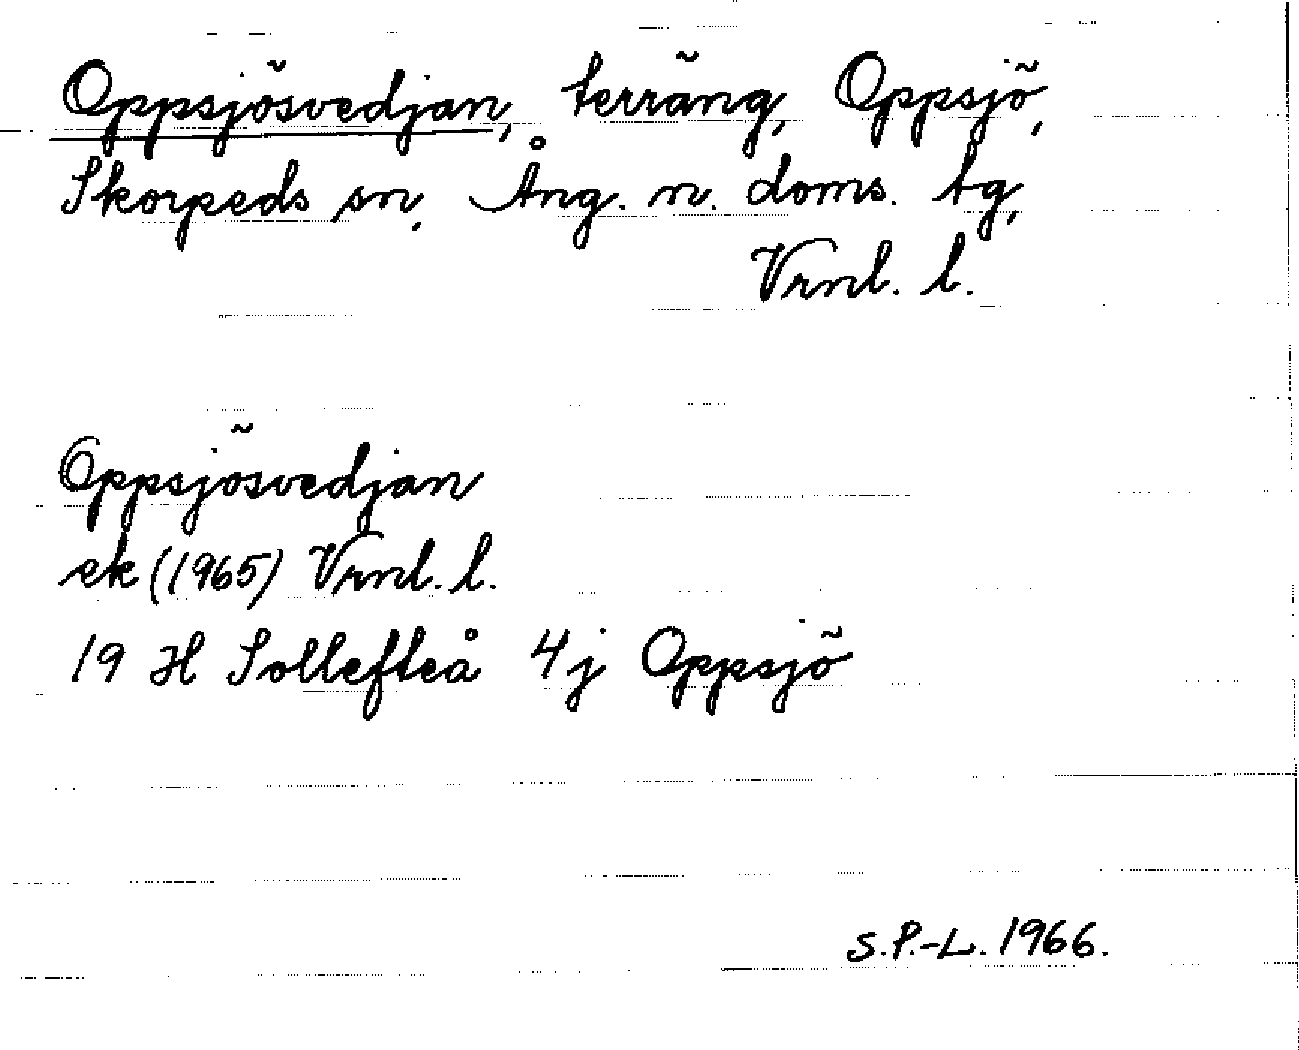 Oppsjösvedjan, terräng, Oppsjö,
Skorpeds sn, Ång. n. doms. tg,
Vrnl. l.
Oppsjösvedjan
ek (1965) Vrnl. l.
19 H Sollefteå 4j Oppsjö
S.P.-L. 1966.